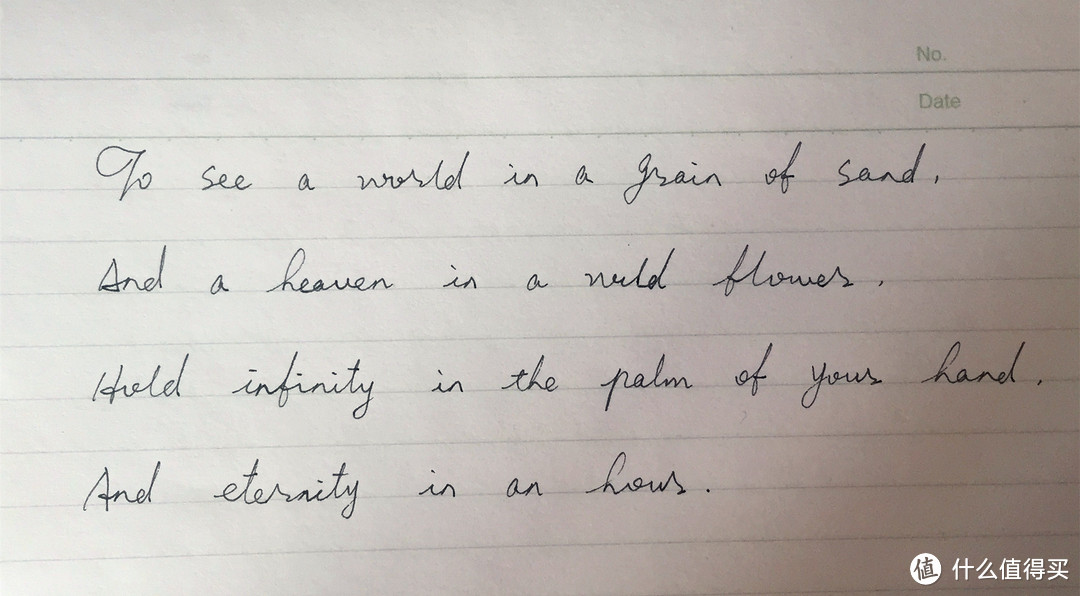 No.
Date
To see a world in a grain of sand,
And a heaven in a wild flower,
Hold infinity in the palm of your hand,
And eternity in an hour.
值 什么值得买